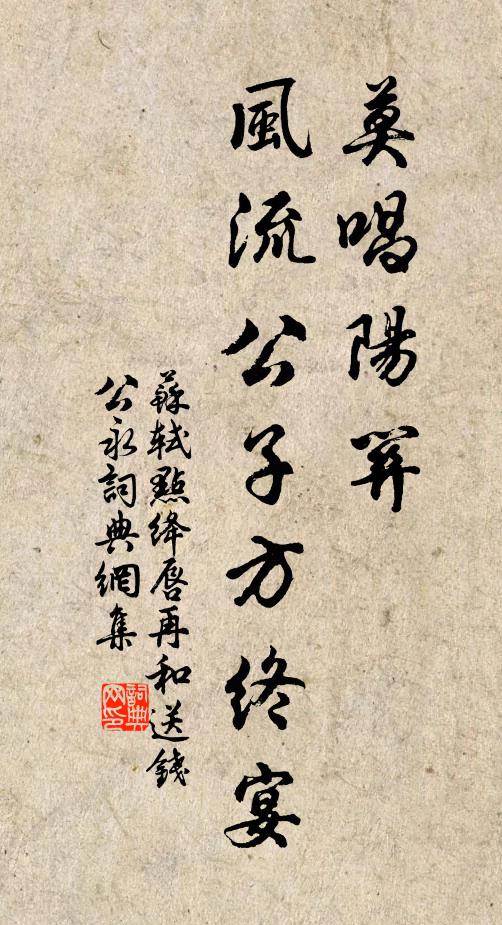 莫唱陽關
風流公子方終宴
蘇軾點絳唇再和送錢
公永詞典網集
詞典網印